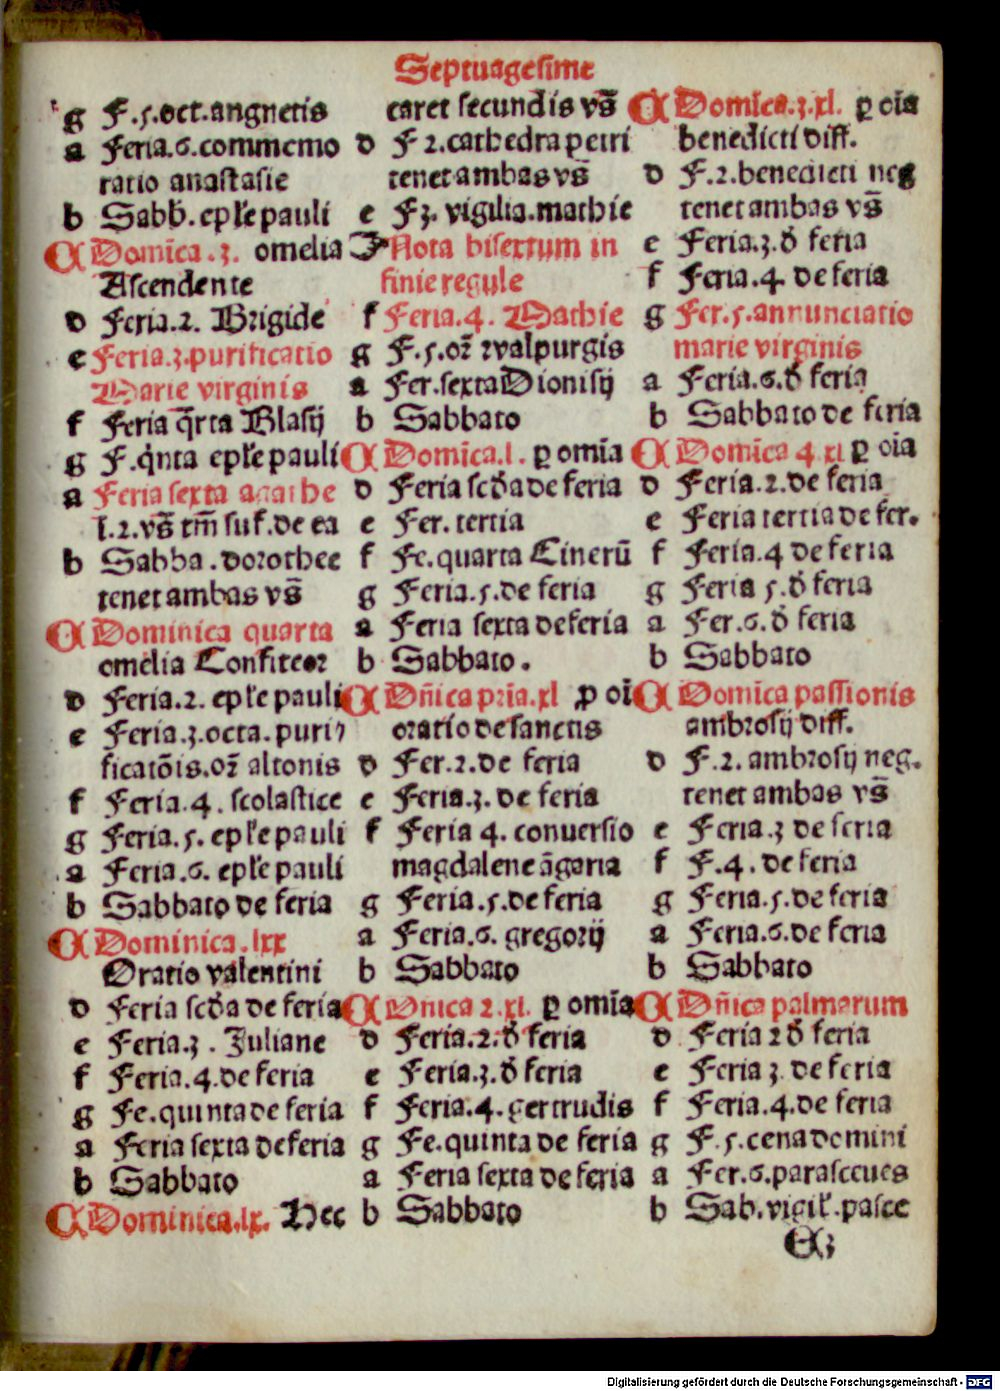 Septuagesime
g F.5.oct.angnetis
a Feria.6.commemo
ratio anastasie
b Sabb̄.ep̄le pauli
C Domīca.3. omelia
Ascendente
d Feria.2. Brigide
e Feria.3.purificatio
Marie virginis
f Feria q̄rta Blasij
g F.q̇nta ep̄le pauli
a Feria sexta agathe
l.2.vs̄ tm̄ suf.de ea
b Sabba.dorothee
tenet ambas vs̄
C Dominica quarta
omelia Confiteor
d Feria.2. ep̄le pauli
e Feria.3.octa.puri
ficatōis.or̄ altonis
f Feria.4. scolastice
g Feria.5. ep̄le pauli
a Feria.6. ep̄le pauli
b Sabbato de feria
C Dominica.lxx
Oratio valentini
d Feria scd̄a de feria
e Feria.3. Juliane
f Feria.4.de feria
g Fe.quinta de feria
a Feria sexta de feria
b Sabbato
C Dominica.lx. Hec
caret secundis vs̄
d F 2.cathedra petri
tenet ambas vs̄
e F3. vigilia.mathie
Nota bisextum in
finie regule
f Feria.4. Mathie
g F.5.or̄ walpurgis
a Fer.sexta Dionisij
b Sabbato
C Domīca.l. ꝑ omīa
d Feria scd̄a de feria
e Fer. tertia
f Fe.quarta Cinerū
g Feria.5.de feria
a Feria sexta de feria
b Sabbato.
C Dn̄ica pria.xl ꝑ oī
oratio de sanctis
d Fer.2.de feria
e Feria.3.de feria
f Feria 4. conuersio
magdalene āgaria
g Feria.5.de feria
a Feria.6. gregorij
b Sabbato
C Dn̄ica 2.xl. ꝑ omīa
d Feria.2.d̄ feria
e Feria.3.d̄ feria
f Feria.4.gertrudis
g Fe.quinta de feria
a Feria sexta de feria
b Sabbato
C Domīca.3.xl. ꝑ oīa
benedicti diff.
d F.2.benedicti neg
tenet ambas vs̄
e Feria.3.d̄ feria
f Feria.4. de feria
g Fer.5.annunciatio
marie virginis
a Feria.6.d̄ feria
b Sabbato de feria
C Domīca 4 xl ꝑ oīa
d Feria.2.de feria
e Feria tertia de fer.
f Feria.4 de feria
g Feria 5.d̄ feria
a Fer.6.d̄ feria
b Sabbato
C Domīca passionis
ambrosij diff.
d F.2. ambrosij neg.
tenet ambas vs̄
e Feria.3 de feria
f F.4. de feria
g Feria.5.de feria
a Feria.6.de feria
b Sabbato
C Dn̄ica palmarum
d Feria 2 d̄ feria
e Feria 3. de feria
f Feria.4.de feria
g F.5.cena domini
a Fer.6.parasceues
b Sab.vigil̄.pasce
Digitalisierung gefördert durch die Deutsche Forschungsgemeinschaft - DFG